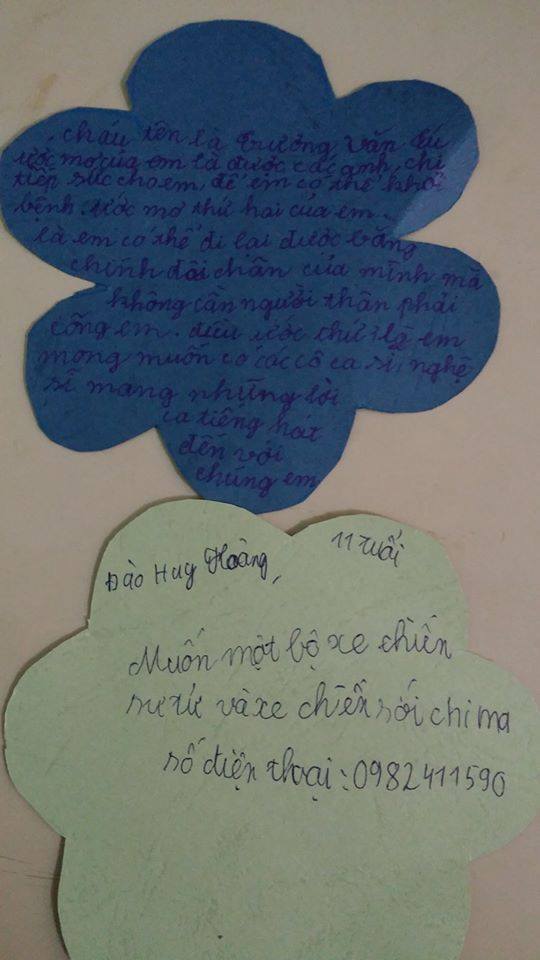 cháu tên là Trương Văn Tú
ước mơ của em là được các anh, chị
tiếp sức cho em, để em có thể khỏi
bệnh. ước mơ thứ hai của em.
là em có thể đi lại được bằng
chính đôi chân của mình mà
không cần người thân phải
cõng em. điều ước thứ 3 là em
mong muốn có các cô ca sĩ, nghệ
sĩ mang những lời
ca tiếng hát
đến với
chúng em
Đào Huy Hoàng, 11 Tuổi
Muốn một bộ xe chiến
sư tử và xe chiến sói chima
số điện thoại: 0982411590